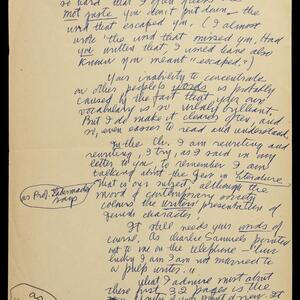 so hard that I often
mot juste you don't put down — the
word that escaped you. (I almost
wrote "the word that missed you." Had
you written that, I would have also
known you meant "escaped.")
Your inability to concentrate
on other people's words is probably
caused by the fact that your own
vocabulary is so vividly brilliant.
But I do make it clearer often, and
so, even easier to read and understand.
In the Ch. I am rewriting and
rewriting, I try, as I said in my
letter to you, to remember I am
talking about the Jew in literature
as Prof. says
That is our subject, although the
mood of contemporary society
colours the writers' presentation of
Jewish character.
It still needs your words of
course. As Charles Samuels pointed
out to me on the telephone — "Your
lucky I am I am not married to
a pulp writer."
What I admire most about
these first 32 pages is the